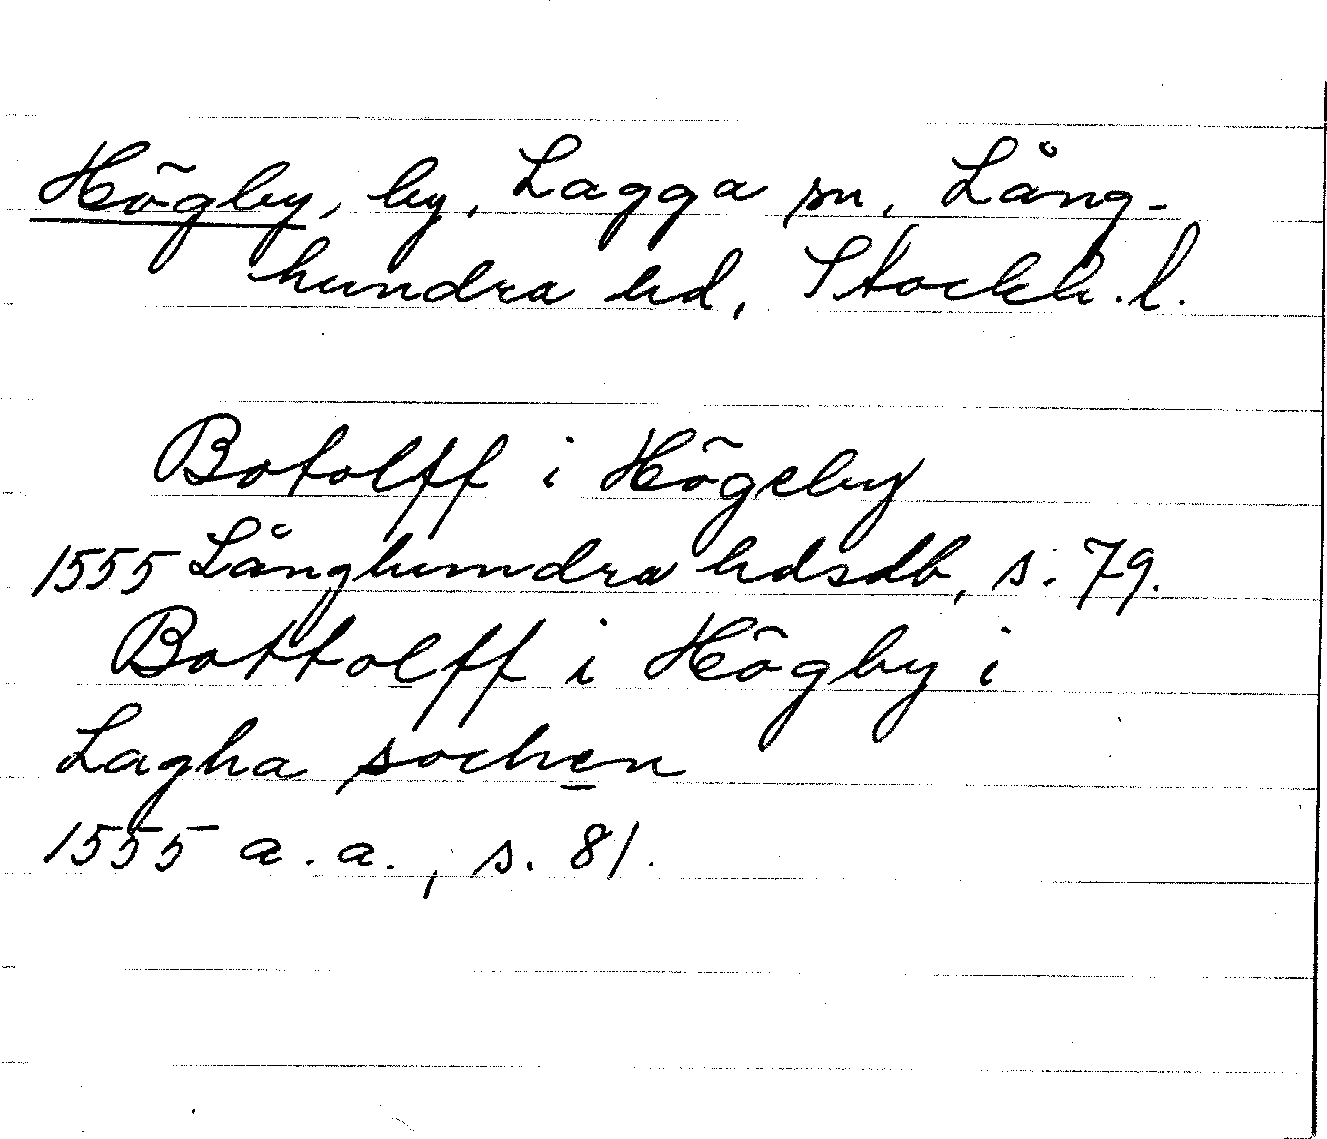 Högby, by, Lagga sn, Lång-
hundra hd, Stockh. l.
Botolff i Högeby
1555 Långhundra hdsdb, s. 79.
Bottolff i Högby i
Lagha sochen
1555 a.a., s. 81.